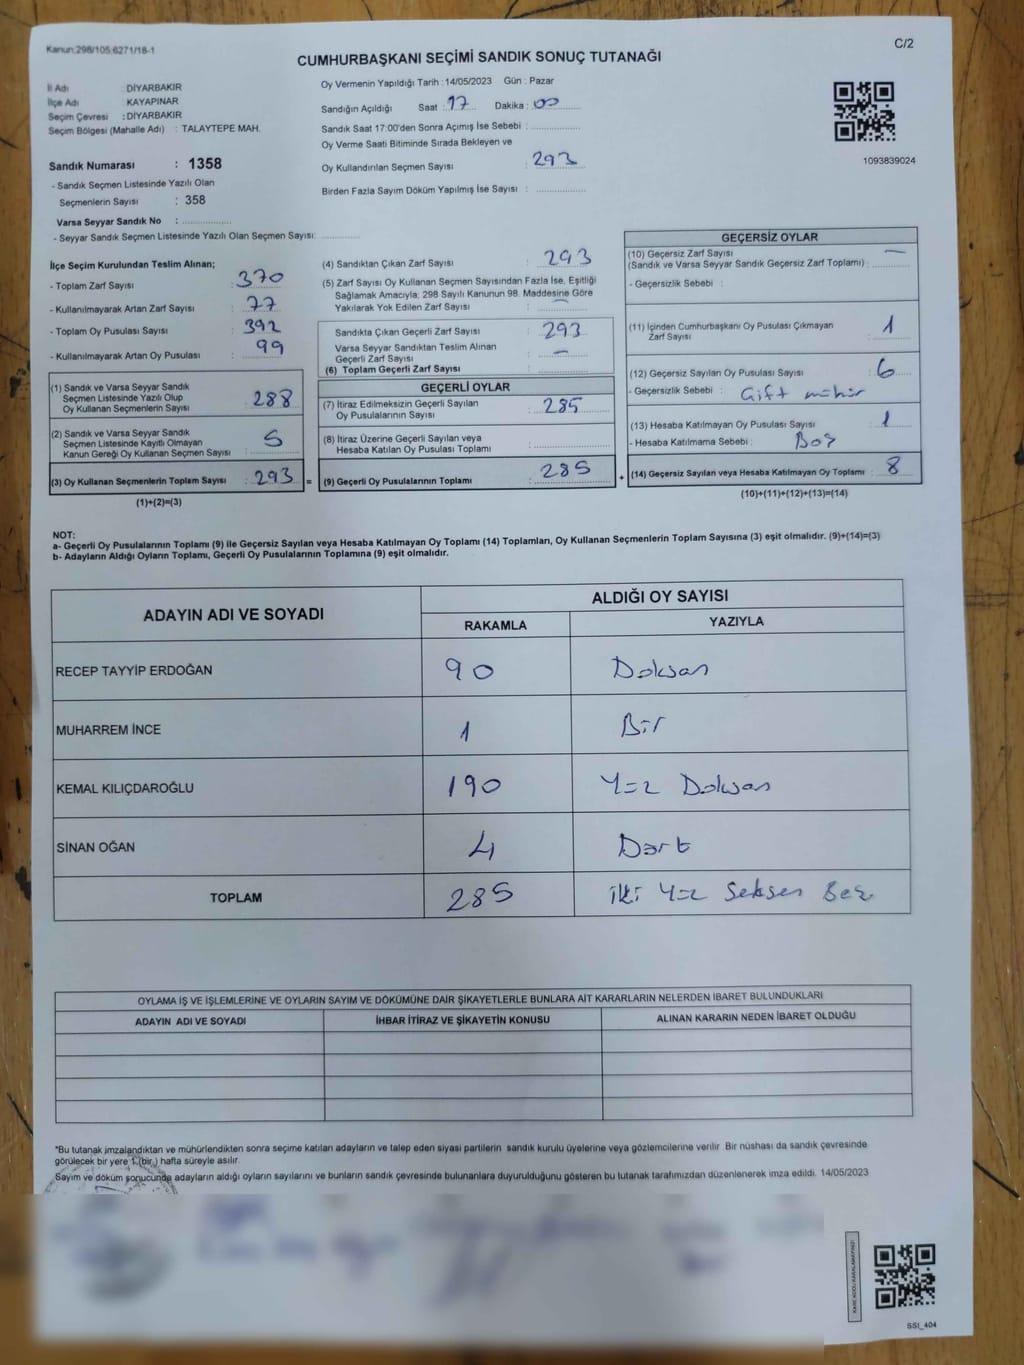 Kanun:298/105;6271/18-1
C/2
CUMHURBAŞKANI SEÇİMİ SANDIK SONUÇ TUTANAĞI
İl Adı : DİYARBAKIR
İlçe Adı KAYAPINAR
Seçim Çevresi : DİYARBAKIR
Seçim Bölgesi (Mahalle Adı) : TALAYTEPE MAH.
Sandık Numarası : 1358
- Sandık Seçmen Listesinde Yazılı Olan
Seçmenlerin Sayısı : 358
Varsa Seyyar Sandık No :
- Seyyar Sandık Seçmen Listesinde Yazılı Olan Seçmen Sayısı:
Oy Vermenin Yapıldığı Tarih : 14/05/2023 Gün : Pazar
Sandığın Açıldığı Saat : 17 Dakika : 00
Sandık Saat 17:00'den Sonra Açımış İse Sebebi :
Oy Verme Saati Bitiminde Sırada Bekleyen ve
Oy Kullandırılan Seçmen Sayısı : 293
Birden Fazla Sayım Döküm Yapılmış İse Sayısı :
1093839024
İlçe Seçim Kurulundan Teslim Alınan;
- Toplam Zarf Sayısı : 370
- Kullanılmayarak Artan Zarf Sayısı : 77
- Toplam Oy Pusulası Sayısı : 392
- Kullanılmayarak Artan Oy Pusulası : 99
(1) Sandık ve Varsa Seyyar Sandık
Seçmen Listesinde Yazılı Olup
Oy Kullanan Seçmenlerin Sayısı : 288
(2) Sandık ve Varsa Seyyar Sandık
Seçmen Listesinde Kayıtlı Olmayan
Kanun Gereği Oy Kullanan Seçmen Sayısı : 5
(3) Oy Kullanan Seçmenlerin Toplam Sayısı : 293 =
(1)+(2)=(3)
(4) Sandıktan Çıkan Zarf Sayısı : 293
(5) Zarf Sayısı Oy Kullanan Seçmen Sayısından Fazla İse, Eşitliği
Sağlamak Amacıyla; 298 Sayılı Kanunun 98. Maddesine Göre
Yakılarak Yok Edilen Zarf Sayısı : —
Sandıkta Çıkan Geçerli Zarf Sayısı : 293
Varsa Seyyar Sandıktan Teslim Alınan
Geçerli Zarf Sayısı : —
(6) Toplam Geçerli Zarf Sayısı :
GEÇERLİ OYLAR
(7) İtiraz Edilmeksizin Geçerli Sayılan
Oy Pusulalarının Sayısı : 285
(8) İtiraz Üzerine Geçerli Sayılan veya
Hesaba Katılan Oy Pusulası Toplamı :
(9) Geçerli Oy Pusulalarının Toplamı : 285 +
GEÇERSİZ OYLAR
(10) Geçersiz Zarf Sayısı —
(Sandık ve Varsa Seyyar Sandık Geçersiz Zarf Toplamı) :
- Geçersizlik Sebebi :
(11) İçinden Cumhurbaşkanı Oy Pusulası Çıkmayan
Zarf Sayısı : 1
(12) Geçersiz Sayılan Oy Pusulası Sayısı : 6
- Geçersizlik Sebebi : Çift mühür
(13) Hesaba Katılmayan Oy Pusulası Sayısı : 1
- Hesaba Katılmama Sebebi : Boş
(14) Geçersiz Sayılan veya Hesaba Katılmayan Oy Toplamı : 8
(10)+(11)+(12)+(13)=(14)
NOT:
a- Geçerli Oy Pusulalarının Toplamı (9) ile Geçersiz Sayılan veya Hesaba Katılmayan Oy Toplamı (14) Toplamları, Oy Kullanan Seçmenlerin Toplam Sayısına (3) eşit olmalıdır. (9)+(14)=(3)
b- Adayların Aldığı Oyların Toplamı, Geçerli Oy Pusulalarının Toplamına (9) eşit olmalıdır.
ADAYIN ADI VE SOYADI
ALDIĞI OY SAYISI
RAKAMLA YAZIYLA
RECEP TAYYİP ERDOĞAN 90 Doksan
MUHARREM İNCE 1 Bir
KEMAL KILIÇDAROĞLU 190 Yüz Doksan
SİNAN OĞAN 4 Dört
TOPLAM 285 İki Yüz Seksen Beş
OYLAMA İŞ VE İŞLEMLERİNE VE OYLARIN SAYIM VE DÖKÜMÜNE DAİR ŞİKAYETLERLE BUNLARA AİT KARARLARIN NELERDEN İBARET BULUNDUKLARI
ADAYIN ADI VE SOYADI İHBAR İTİRAZ VE ŞİKAYETİN KONUSU ALINAN KARARIN NEDEN İBARET OLDUĞU
*Bu tutanak imzalandıktan ve mühürlendikten sonra seçime katılan adayların ve talep eden siyasi partilerin sandık kurulu üyelerine veya gözlemcilerine verilir. Bir nüshası da sandık çevresinde
görülecek bir yere 1 (bir) hafta süreyle asılır.
Sayım ve döküm sonucunda adayların aldığı oyların sayılarını ve bunların sandık çevresinde bulunanlara duyurulduğunu gösteren bu tutanak tarafımızdan düzenlenerek imza edildi. 14/05/2023
KARE KODU KARALAMAYINIZ!
SSt_404